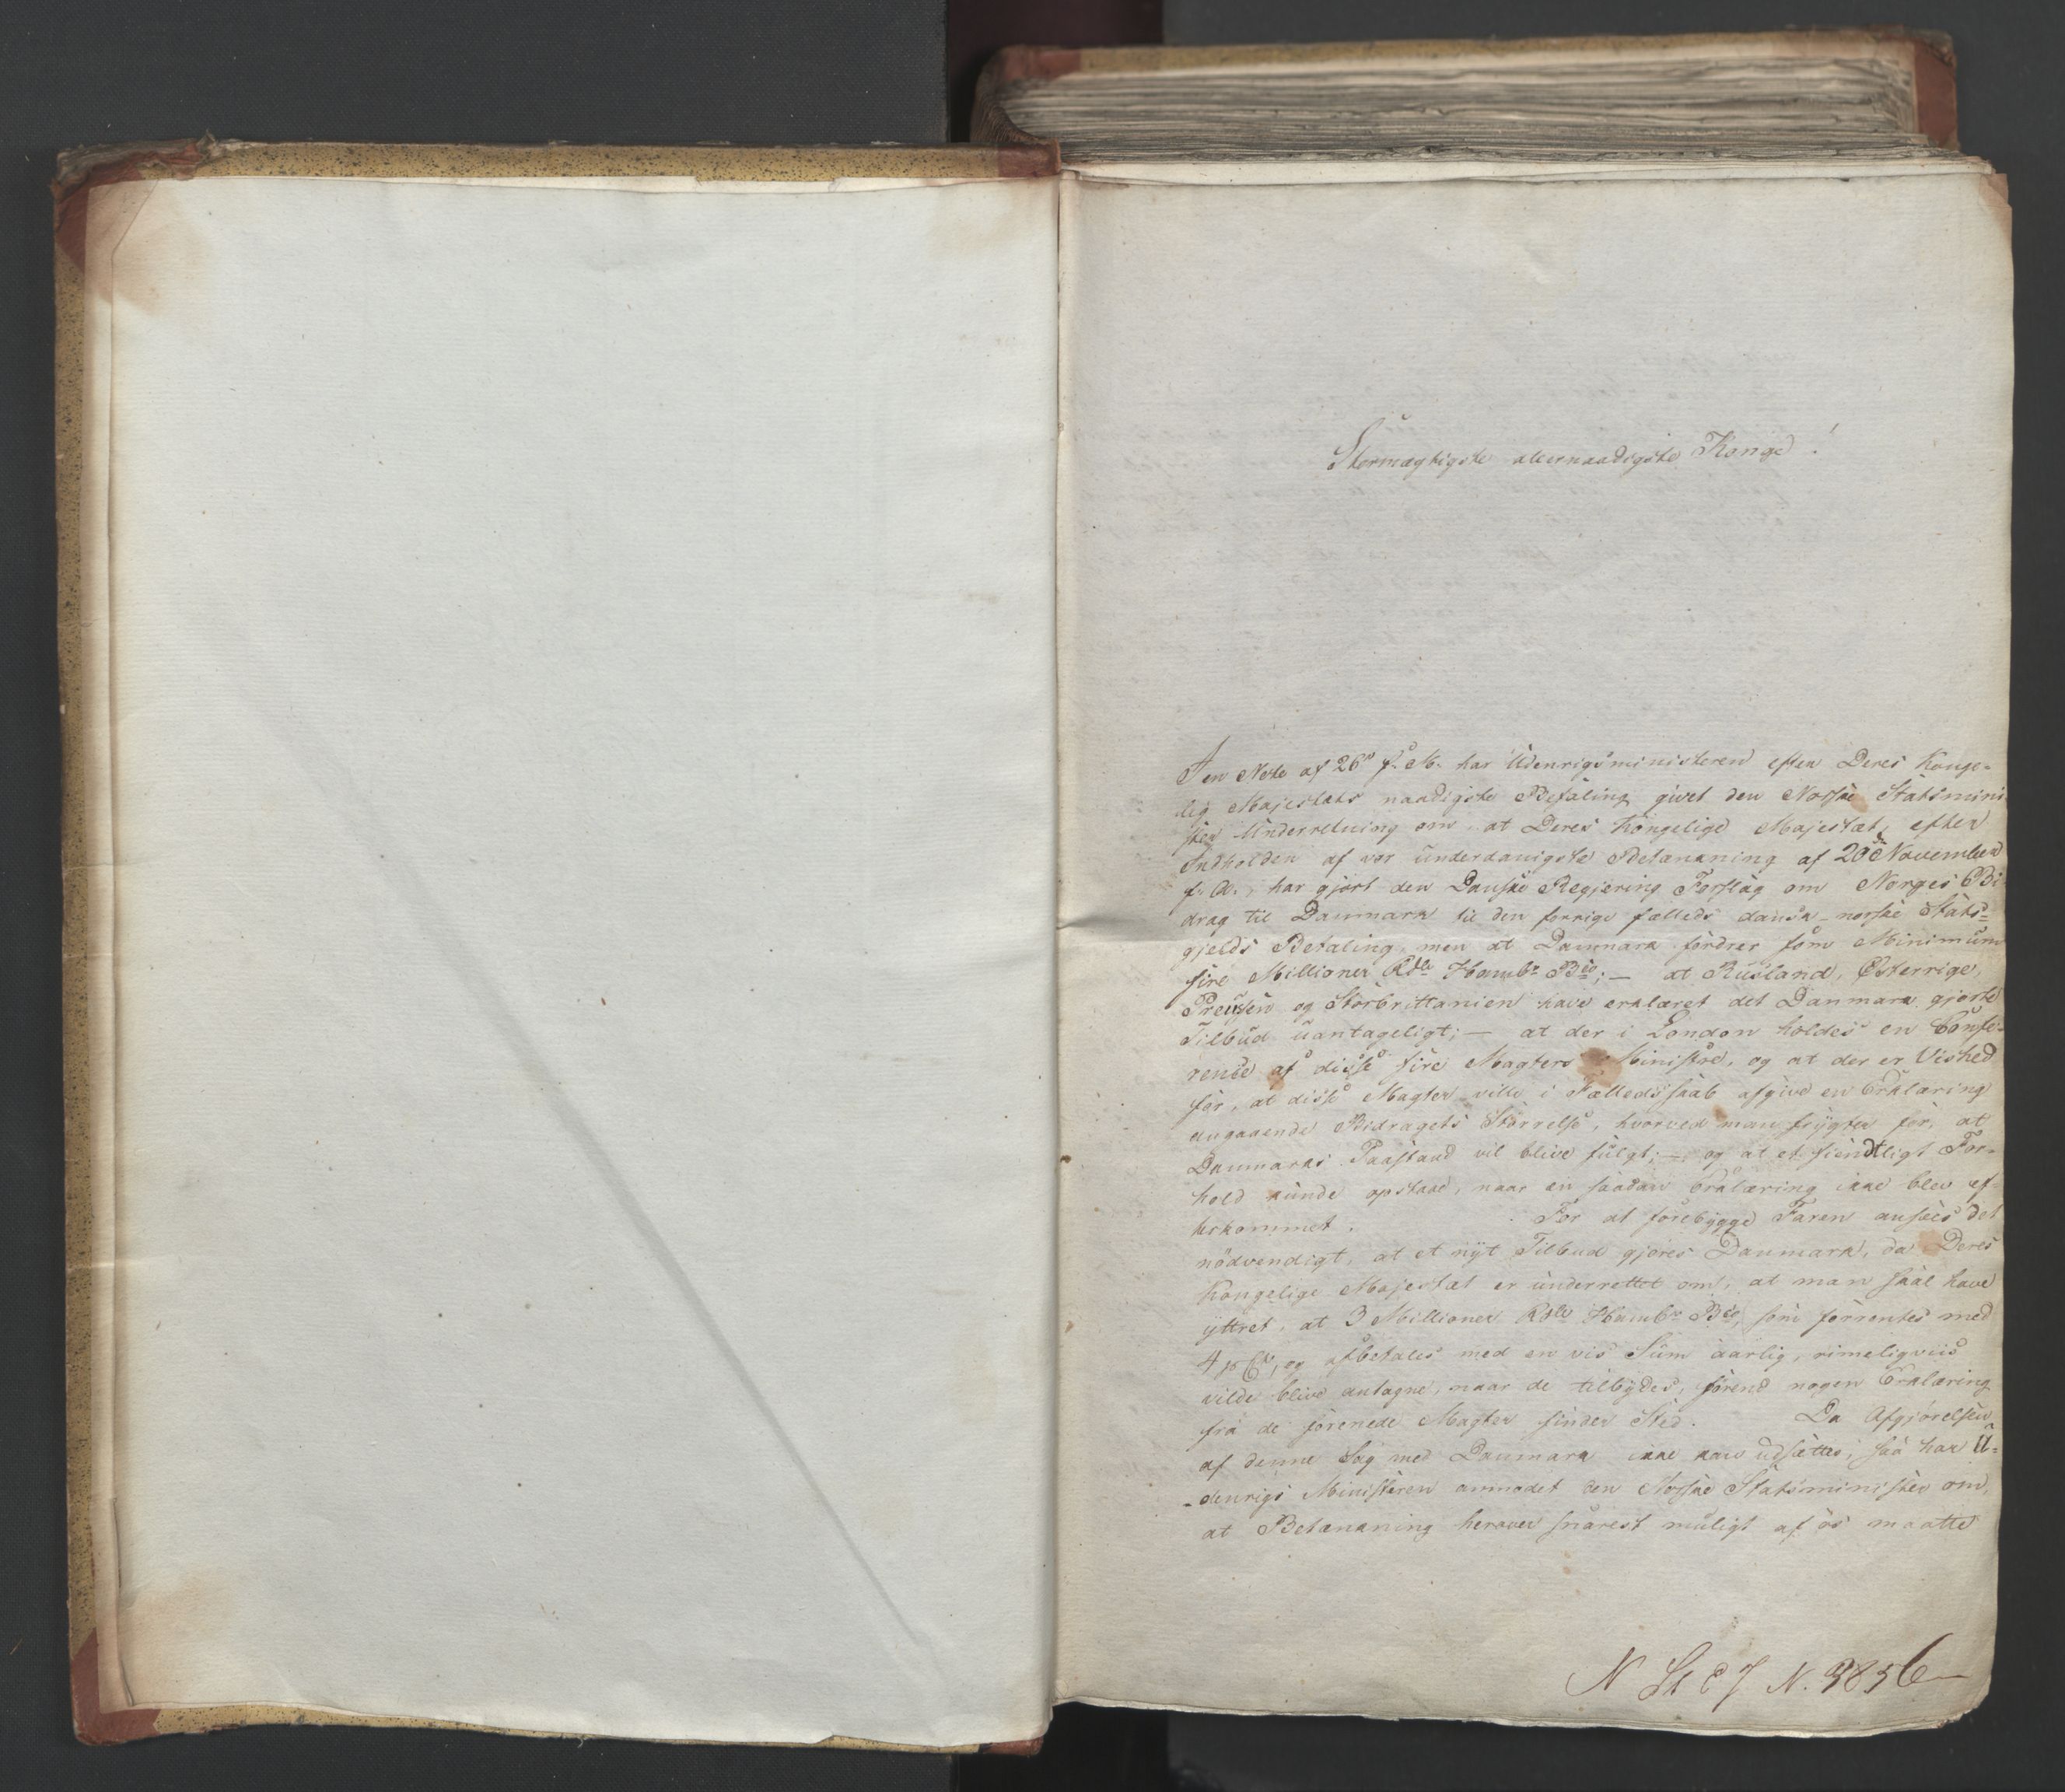 Stormægtigste allernaadigste Konge!
I en Note af 26de f. M. har Udenrigsministeren efter Deres Konge-
lig Majestæts naadigste Befaling givet den Norske Statsmini-
ster Underretning om at Deres Kongelige Majestæt, efter
Indholden af vor underdanigste Betænkning af 20de November
f. A., har gjort den Danske Regjering Forslag om Norges Bi-
drag til Danmark til den forrige fælleds dansk-norske Stats-
gjelds Betaling, men at Danmark fordrer som Minimum
fire Millioner Rdlr Hambr Bco; — at Rusland, Østerrige,
Preussen og Storbrittanien have erklæret det Danmark gjorte
Tilbud uantageligt; — at der i London holdes en Confe-
rence af disse fire Magters Ministre, og at der er Vished
for, at disse Magter ville i Fælledsskab afgive en Erklæring
angaaende Bidragets Størrelse, hvorved man frygter for, at
Danmarks Paastand vil blive fulgt; — og at et fiendtligt For-
hold kunde opstaae, naar en saadan Erklæring ikke blev ef-
terkommet. For at forebygge Faren ansees det
nödvendigt, at et nyt Tilbud gjøres Danmark, da Deres
Kongelige Majestæt er underrettet om, at man skal have
yttret, at 3 Millioner Rdlr Hambr Bco, som forrentes med
4 p Ct, og afbetales med en vis Sum aarlig, rimeligviis
vilde blive antagne, naar de tilbydes, förend nogen Erklæring
fra de forenede Magter finder Sted. Da Afgjörelsen
af denne Sag med Danmark ikke kan udsættes, saa har U-
-denrigs Ministeren anmodet den Norske Statsminister om,
at Betænkning herover snarest muligt af os maatte
N St E J N. 3856